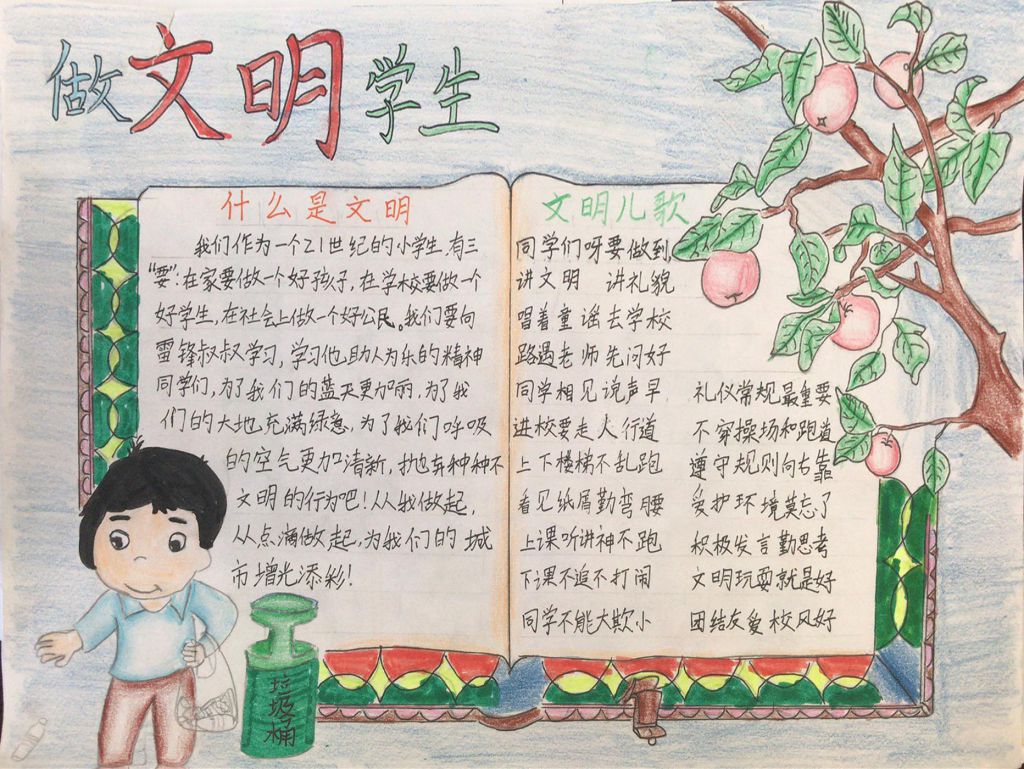 做文明学生
什么是文明
我们作为一个21世纪的小学生,有三
“要”:在家要做一个好孩子,在学校要做一个
好学生,在社会上做一个好公民。我们要向
雷锋叔叔学习,学习他助人为乐的精神
同学们,为了我们的蓝天更加丽,为了我
们的大地充满绿意,为了我们呼吸
的空气更加清新,抛弃种种不
文明的行为吧!从我做起,
从点滴做起,为我们的城
市增光添彩!
文明儿歌
同学们呀要做到,
讲文明 讲礼貌
唱着童谣去学校
路遇老师先问好
同学相见说声早,
进校要走人行道
上下楼梯不乱跑
看见纸屑勤弯腰
上课听讲神不跑
下课不追不打闹
同学不能大欺小
礼仪常规最重要
不穿操场和跑道
遵守规则向右靠
爱护环境莫忘了
积极发言勤思考
文明玩耍就是好
团结友爱校风好
垃圾桶